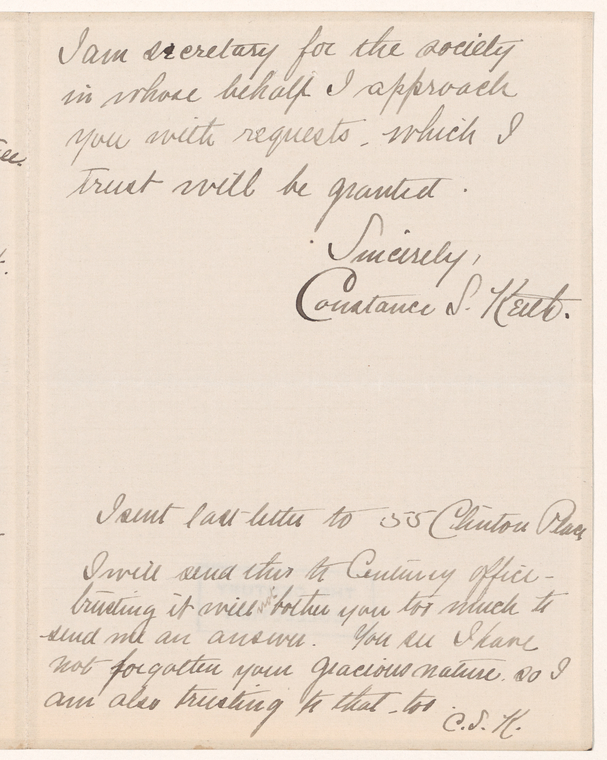 I am secretary for the society
in whose behalf I approach
you with requests - which I
trust will be granted.
Sincerely,
Constance S. Keith.
I sent last letter to 55 Clinton Place
I will send this to Century office -
trusting it will not bother you too much to
send me an answer. You see I have
not forgotten your gracious nature. so I
am also trusting to that - too.
C.S.K.